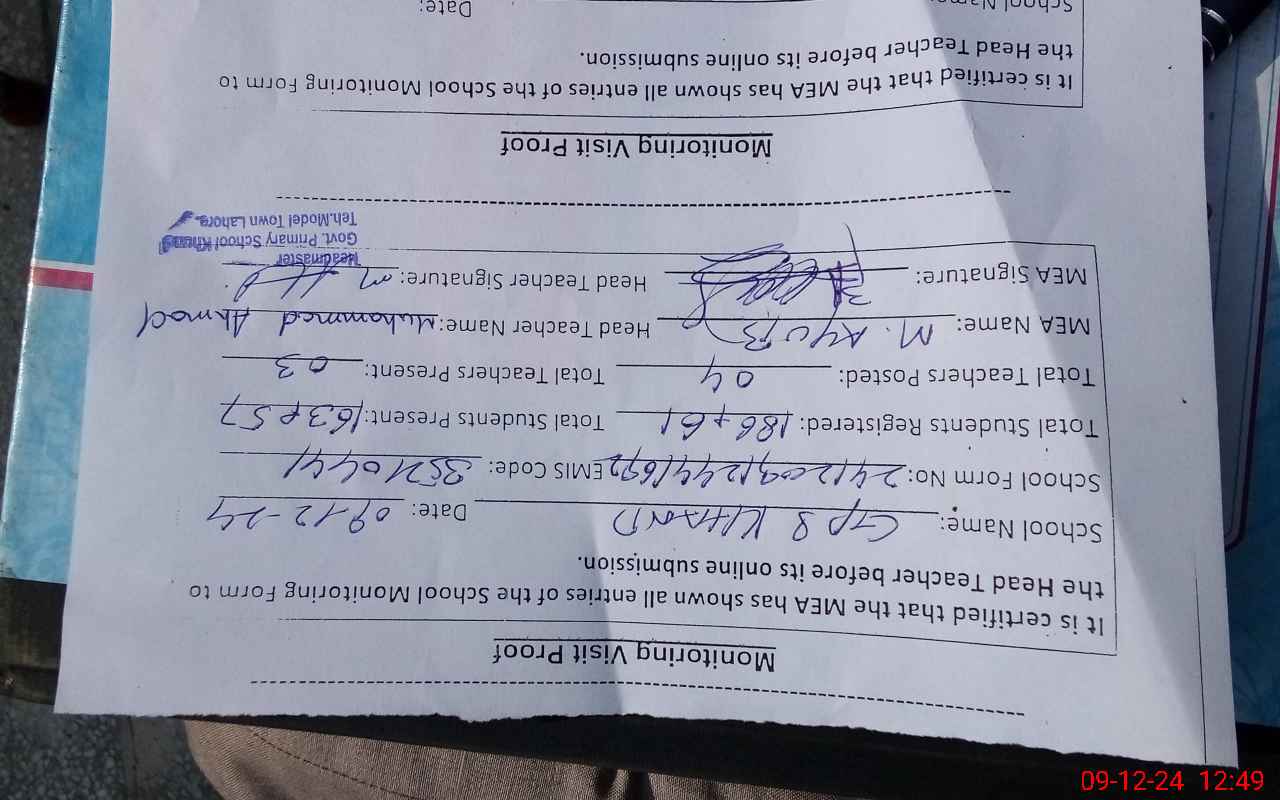 Monitoring Visit Proof
It is certified that the MEA has shown all entries of the School Monitoring Form to
the Head Teacher before its online submission.
School Name: GPS KHAND Date: 09-12-24
School Form No: EMIS Code: 35210441
Total Students Registered: 186+61 Total Students Present: 163+57
Total Teachers Posted: 04 Total Teachers Present: 03
MEA Name: M. AYUB Head Teacher Name: Muhammad Ahmad
MEA Signature: Head Teacher Signature:
Headmaster
Govt. Primary School
Teh.Model Town Lahore.
Monitoring Visit Proof
It is certified that the MEA has shown all entries of the School Monitoring Form to
the Head Teacher before its online submission.
School Name: Date:
09-12-24 12:49